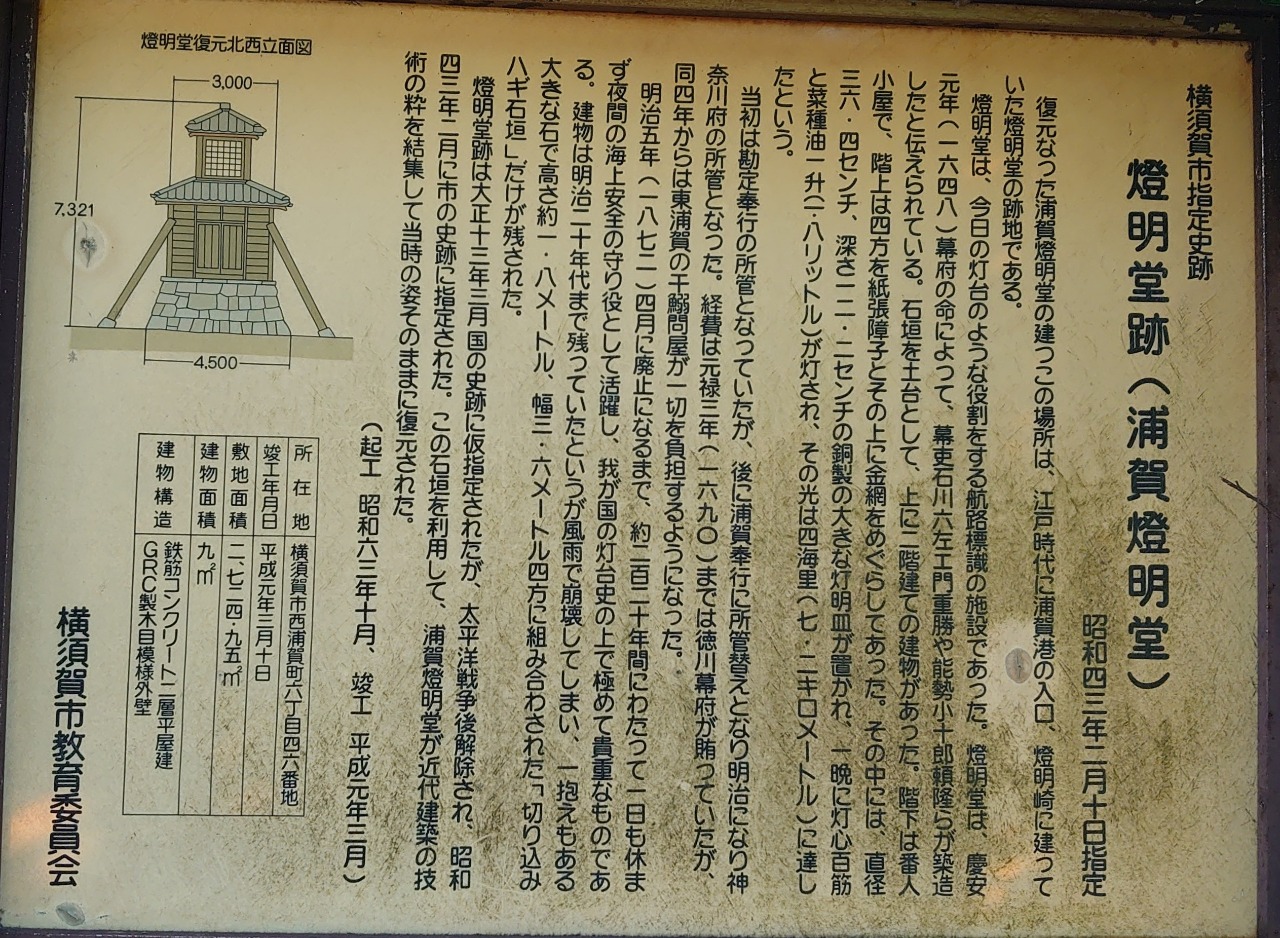 横須賀市指定史跡
燈明堂跡（浦賀燈明堂）
昭和四三年二月十日指定
復元なった浦賀燈明堂の建つこの場所は、江戸時代に浦賀港の入口、燈明崎に建って
いた燈明堂の跡地である。
燈明堂は、今日の灯台のような役割をする航路標識の施設であった。燈明堂は、慶安
元年（一六四八）幕府の命によって、幕吏石川六左エ門重勝や能勢小十郎頼隆らが築造
したと伝えられている。石垣を土台として、上に二階建ての建物があった。階下は番人
小屋で、階上は四方を紙張障子とその上に金網をめぐらしてあった。その中には、直径
三六・四センチ、深さ一二・二センチの銅製の大きな灯明皿が置かれ、一晩に灯心百筋
と菜種油一升（一・八リットル）が灯され、その光は四海里（七・二キロメートル）に達し
たという。
当初は勘定奉行の所管となっていたが、後に浦賀奉行に所管替えとなり明治になり神
奈川府の所管となった。経費は元禄三年（一六九〇）までは徳川幕府が賄っていたが、
同四年からは東浦賀の干鰯問屋が一切を負担するようになった。
明治五年（一八七二）四月に廃止になるまで、約二百二十年間にわたって一日も休ま
ず夜間の海上安全の守り役として活躍し、我が国の灯台史の上で極めて貴重なものであ
る。建物は明治二十年代まで残っていたというが風雨で崩壊してしまい、一抱えもある
大きな石で高さ約一・八メートル、幅三・六メートル四方に組み合わされた「切り込み
ハギ石垣」だけが残された。
燈明堂跡は大正十三年三月国の史跡に仮指定されたが、太平洋戦争後解除され、昭和
四三年二月に市の史跡に指定された。この石垣を利用して、浦賀燈明堂が近代建築の技
術の粋を結集して当時の姿そのままに復元された。
（起工 昭和六三年十月、 竣工 平成元年三月）
燈明堂復元北西立面図
3,000
7,321
4,500
所在地 横須賀市西浦賀町六丁目四六番地
竣工年月日 平成元年三月十日
敷地面積 二、七二四・九五㎡
建物面積 九㎡
建物構造 鉄筋コンクリート二層平屋建
GRC製木目模様外壁
横須賀市教育委員会